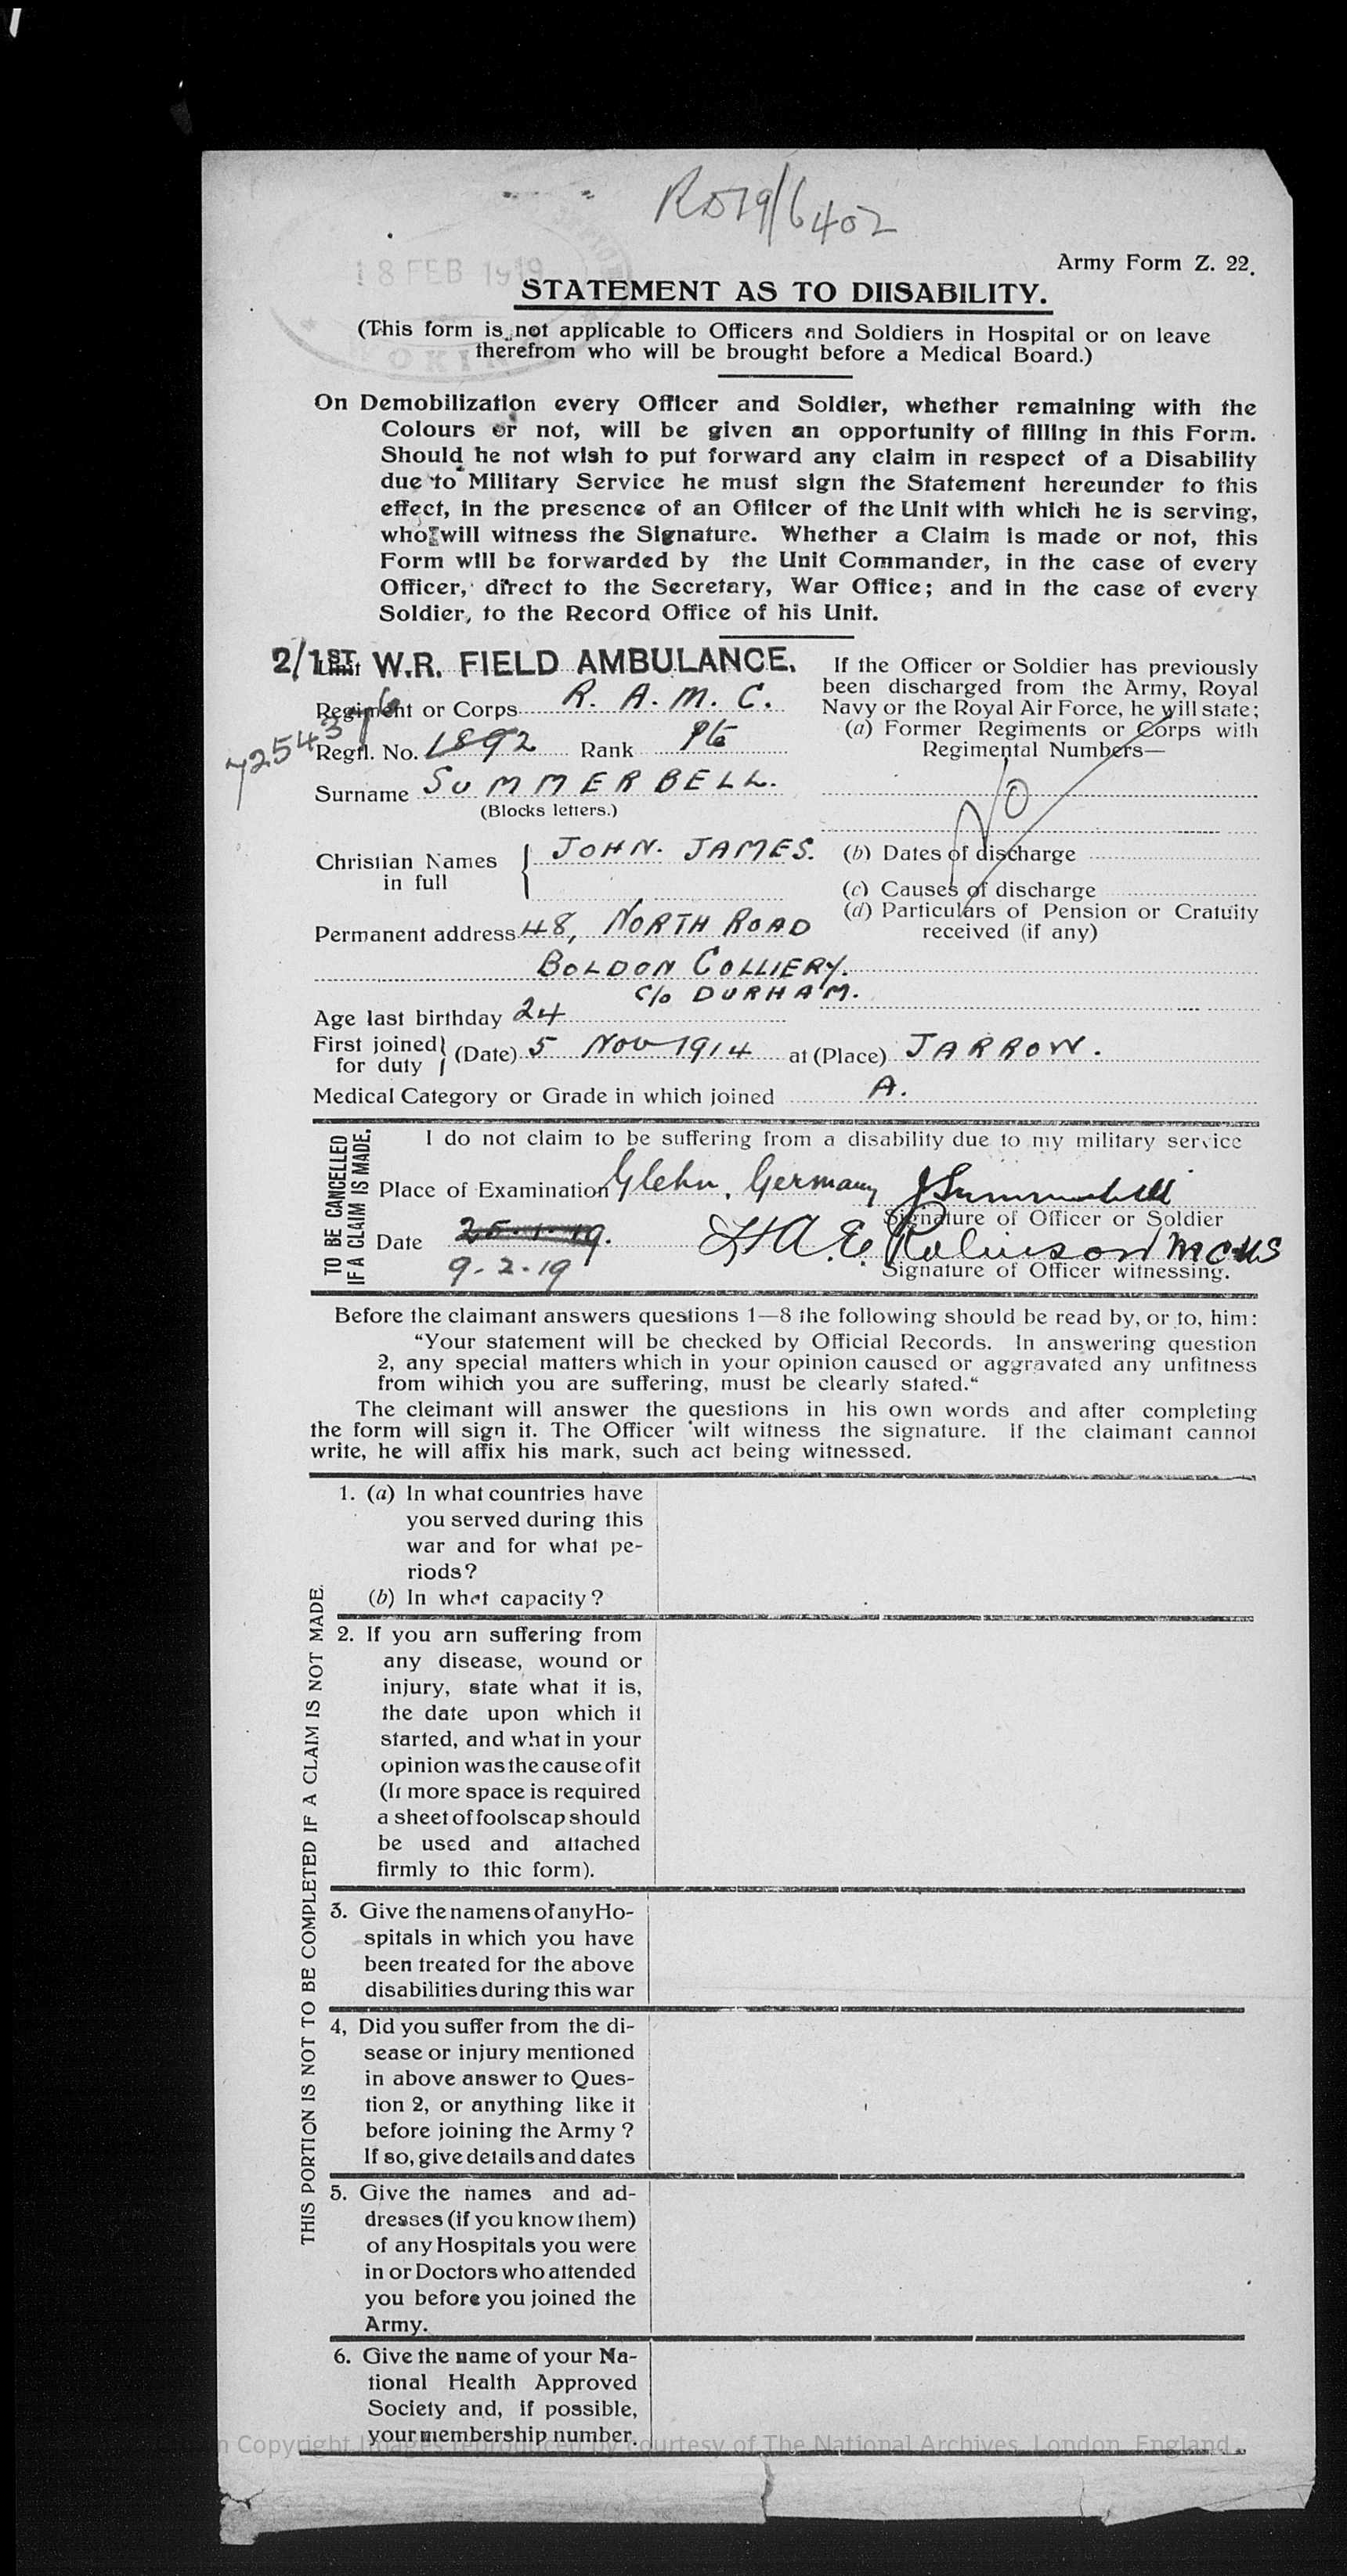 RD19/6402
18 FEB 1919
Army Form Z. 22.
STATEMENT AS TO DIISABILITY.
(This form is not applicable to Officers and Soldiers in Hospital or on leave
therefrom who will be brought before a Medical Board.)
On Demobilization every Officer and Soldier, whether remaining with the
Colours or not, will be given an opportunity of filling in this Form.
Should he not wish to put forward any claim in respect of a Disability
due to Military Service he must sign the Statement hereunder to this
effect, in the presence of an Officer of the Unit with which he is serving,
who will witness the Signature. Whether a Claim is made or not, this
Form will be forwarded by the Unit Commander, in the case of every
Officer, direct to the Secretary, War Office; and in the case of every
Soldier, to the Record Office of his Unit.
Unit 2/1ST W.R. FIELD AMBULANCE.
Regiment or Corps R. A. M. C.
725436
Regtl. No. 1892 Rank Pte
Surname SUMMERBELL.
(Blocks letters.)
Christian Names JOHN. JAMES.
in full
Permanent address 48, NORTH ROAD
BOLDON COLLIERY.
C/o DURHAM.
If the Officer or Soldier has previously
been discharged from the Army, Royal
Navy or the Royal Air Force, he will state;
(a) Former Regiments or Corps with
Regimental Numbers—
NO
(b) Dates of discharge
(c) Causes of discharge
(d) Particulars of Pension or Cratuity
received (if any)
Age last birthday 24
First joined for duty (Date) 5 Nov 1914 at (Place) JARROW.
Medical Category or Grade in which joined A.
TO BE CANCELLED
IF A CLAIM IS MADE.
I do not claim to be suffering from a disability due to my military service
Place of Examination Glehn, Germany J Summerbell
Signature of Officer or Soldier
Date 25.1.19. H A. E. Robinson MC US
9-2-19
Signature of Officer witnessing.
Before the claimant answers questions 1—8 the following should be read by, or to, him:
"Your statement will be checked by Official Records. In answering question
2, any special matters which in your opinion caused or aggravated any unfitness
from wihich you are suffering, must be clearly stated."
The cleimant will answer the questions in his own words and after completing
the form will sign it. The Officer wilt witness the signature. If the claimant cannot
write, he will affix his mark, such act being witnessed.
THIS PORTION IS NOT TO BE COMPLETED IF A CLAIM IS NOT MADE.
1. (a) In what countries have
you served during this
war and for what pe-
riods?
(b) In what capacity?
2. If you arn suffering from
any disease, wound or
injury, state what it is,
the date upon which it
started, and what in your
opinion was the cause of it
(If more space is required
a sheet of foolscap should
be used and attached
firmly to thic form).
3. Give the namens of any Ho-
spitals in which you have
been treated for the above
disabilities during this war
4, Did you suffer from the di-
sease or injury mentioned
in above answer to Ques-
tion 2, or anything like it
before joining the Army ?
If so, give details and dates
5. Give the names and ad-
dresses (if you know them)
of any Hospitals you were
in or Doctors who attended
you before you joined the
Army.
6. Give the name of your Na-
tional Health Approved
Society and, if possible,
your membership number.
n Copyright Images reproduced by courtesy of The National Archives, London, England.